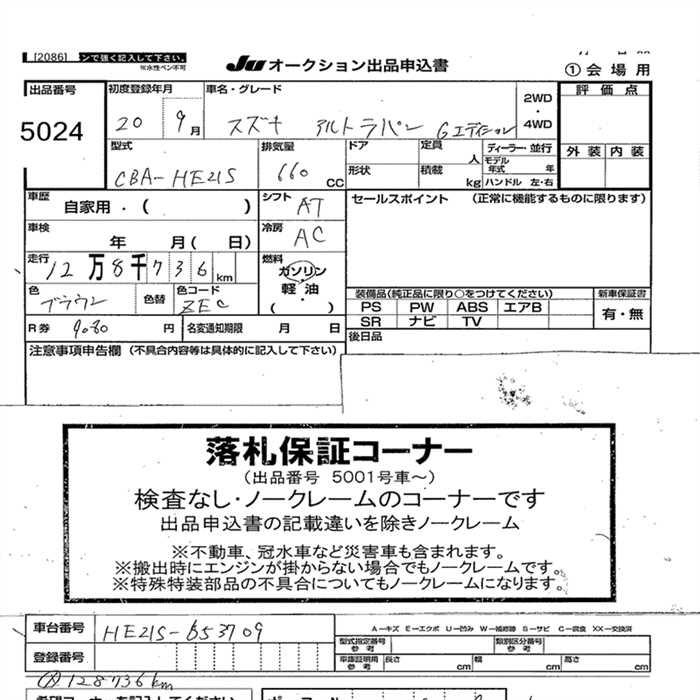 [2086] ンで強く記入して下さい。
※水性ペン不可
JU オークション出品申込書
①会場用
出品番号 5024
初度登録年月 20 9月
車名・グレード スズキ アルトラパン Gエディション
2WD・4WD
評価点
外装 内装
型式 CBA-HE21S
排気量 660 CC
ドア
形状
定員 人
積載 kg
ディーラー・並行
モデル年式 年
ハンドル 左・右
車歴 自家用・( )
シフト AT
セールスポイント (正常に機能するものに限ります)
車検 年 月( 日)
冷房 AC
走行 12万8千736km
燃料 ガソリン 軽油 ( )
色 ブラウン 色替
色コード ZEC
装備品(純正品に限り○をつけてください)
新車保証書
PS PW ABS エアB
SR ナビ TV
有・無
R券 9080円
名変通知期限 月 日
後日品
注意事項申告欄 (不具合内容等は具体的に記入して下さい)
落札保証コーナー
(出品番号 5001号車～)
検査なし・ノークレームのコーナーです
出品申込書の記載違いを除きノークレーム
※不動車、冠水車など災害車も含まれます。
※搬出時にエンジンが掛からない場合でもノークレームです。
※特殊特装部品の不具合についてもノークレームになります。
車台番号 HE21S-653709
A－キズ E－エクボ U－凹み W－補修跡 S－サビ C－腐食 XX－交換済
型式指定番号 参考
類別区分番号 参考
登録番号
車庫証明用 参考 長さ cm 幅 cm 高さ cm
128736km